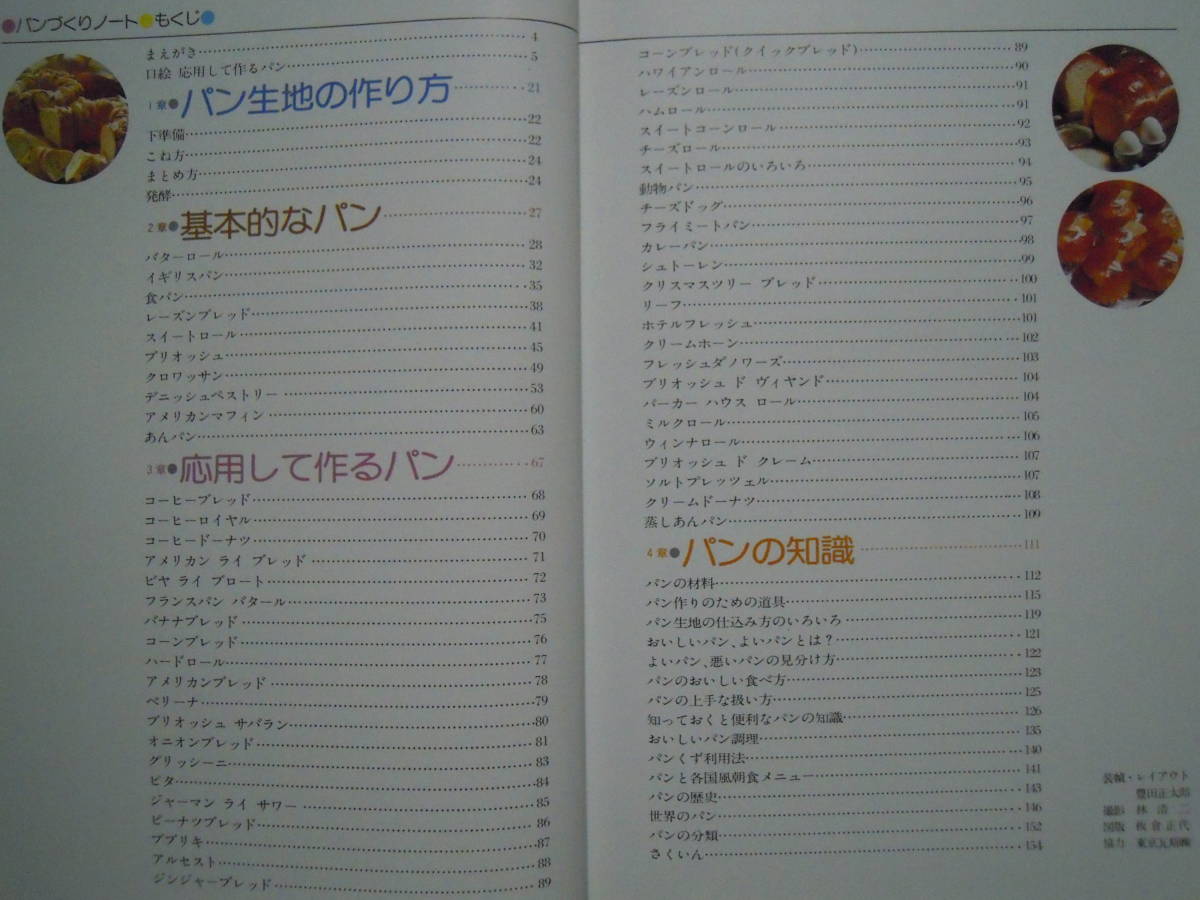 ●パンづくりノート●もくじ●
まえがき 4
口絵 応用して作るパン 5
1章●パン生地の作り方 21
下準備 22
こね方 22
まとめ方 24
発酵 24
2章●基本的なパン 27
バターロール 28
イギリスパン 32
食パン 35
レーズンブレッド 38
スイートロール 41
ブリオッシュ 45
クロワッサン 49
デニッシュペストリー 53
アメリカンマフィン 60
あんパン 63
3章●応用して作るパン 67
コーヒーブレッド 68
コーヒーロイヤル 69
コーヒードーナツ 70
アメリカン ライ ブレッド 71
ビヤ ライ ブロート 72
フランスパン バタール 73
バナナブレッド 75
コーンブレッド 76
ハードロール 77
アメリカンブレッド 78
ベリーナ 79
ブリオッシュ サバラン 80
オニオンブレッド 81
グリッシーニ 83
ピタ 84
ジャーマン ライ サワー 85
ピーナツブレッド 86
ブブリキ 87
アルセスト 88
ジンジャーブレッド 89
コーンブレッド(クイックブレッド) 89
ハワイアンロール 90
レーズンロール 91
ハムロール 91
スイートコーンロール 92
チーズロール 93
スイートロールのいろいろ 94
動物パン 95
チーズドッグ 96
フライミートパン 97
カレーパン 98
シュトーレン 99
クリスマスツリー ブレッド 100
リーフ 101
ホテルフレッシュ 101
クリームホーン 102
フレッシュダノワーズ 103
ブリオッシュ ド ヴィヤンド 104
パーカー ハウス ロール 104
ミルクロール 105
ウィンナロール 106
ブリオッシュ ド クレーム 107
ソルトプレッツェル 107
クリームドーナツ 108
蒸しあんパン 109
4章●パンの知識 111
パンの材料 112
パン作りのための道具 115
パン生地の仕込み方のいろいろ 119
おいしいパン、よいパンとは? 121
よいパン、悪いパンの見分け方 122
パンのおいしい食べ方 123
パンの上手な扱い方 125
知っておくと便利なパンの知識 126
おいしいパン調理 135
パンくず利用法 140
パンと各国風朝食メニュー 141
パンの歴史 143
世界のパン 146
パンの分類 152
さくいん 154
装幀・レイアウト
豊田正太郎
撮影 林 浩二
図版 板倉正代
協力